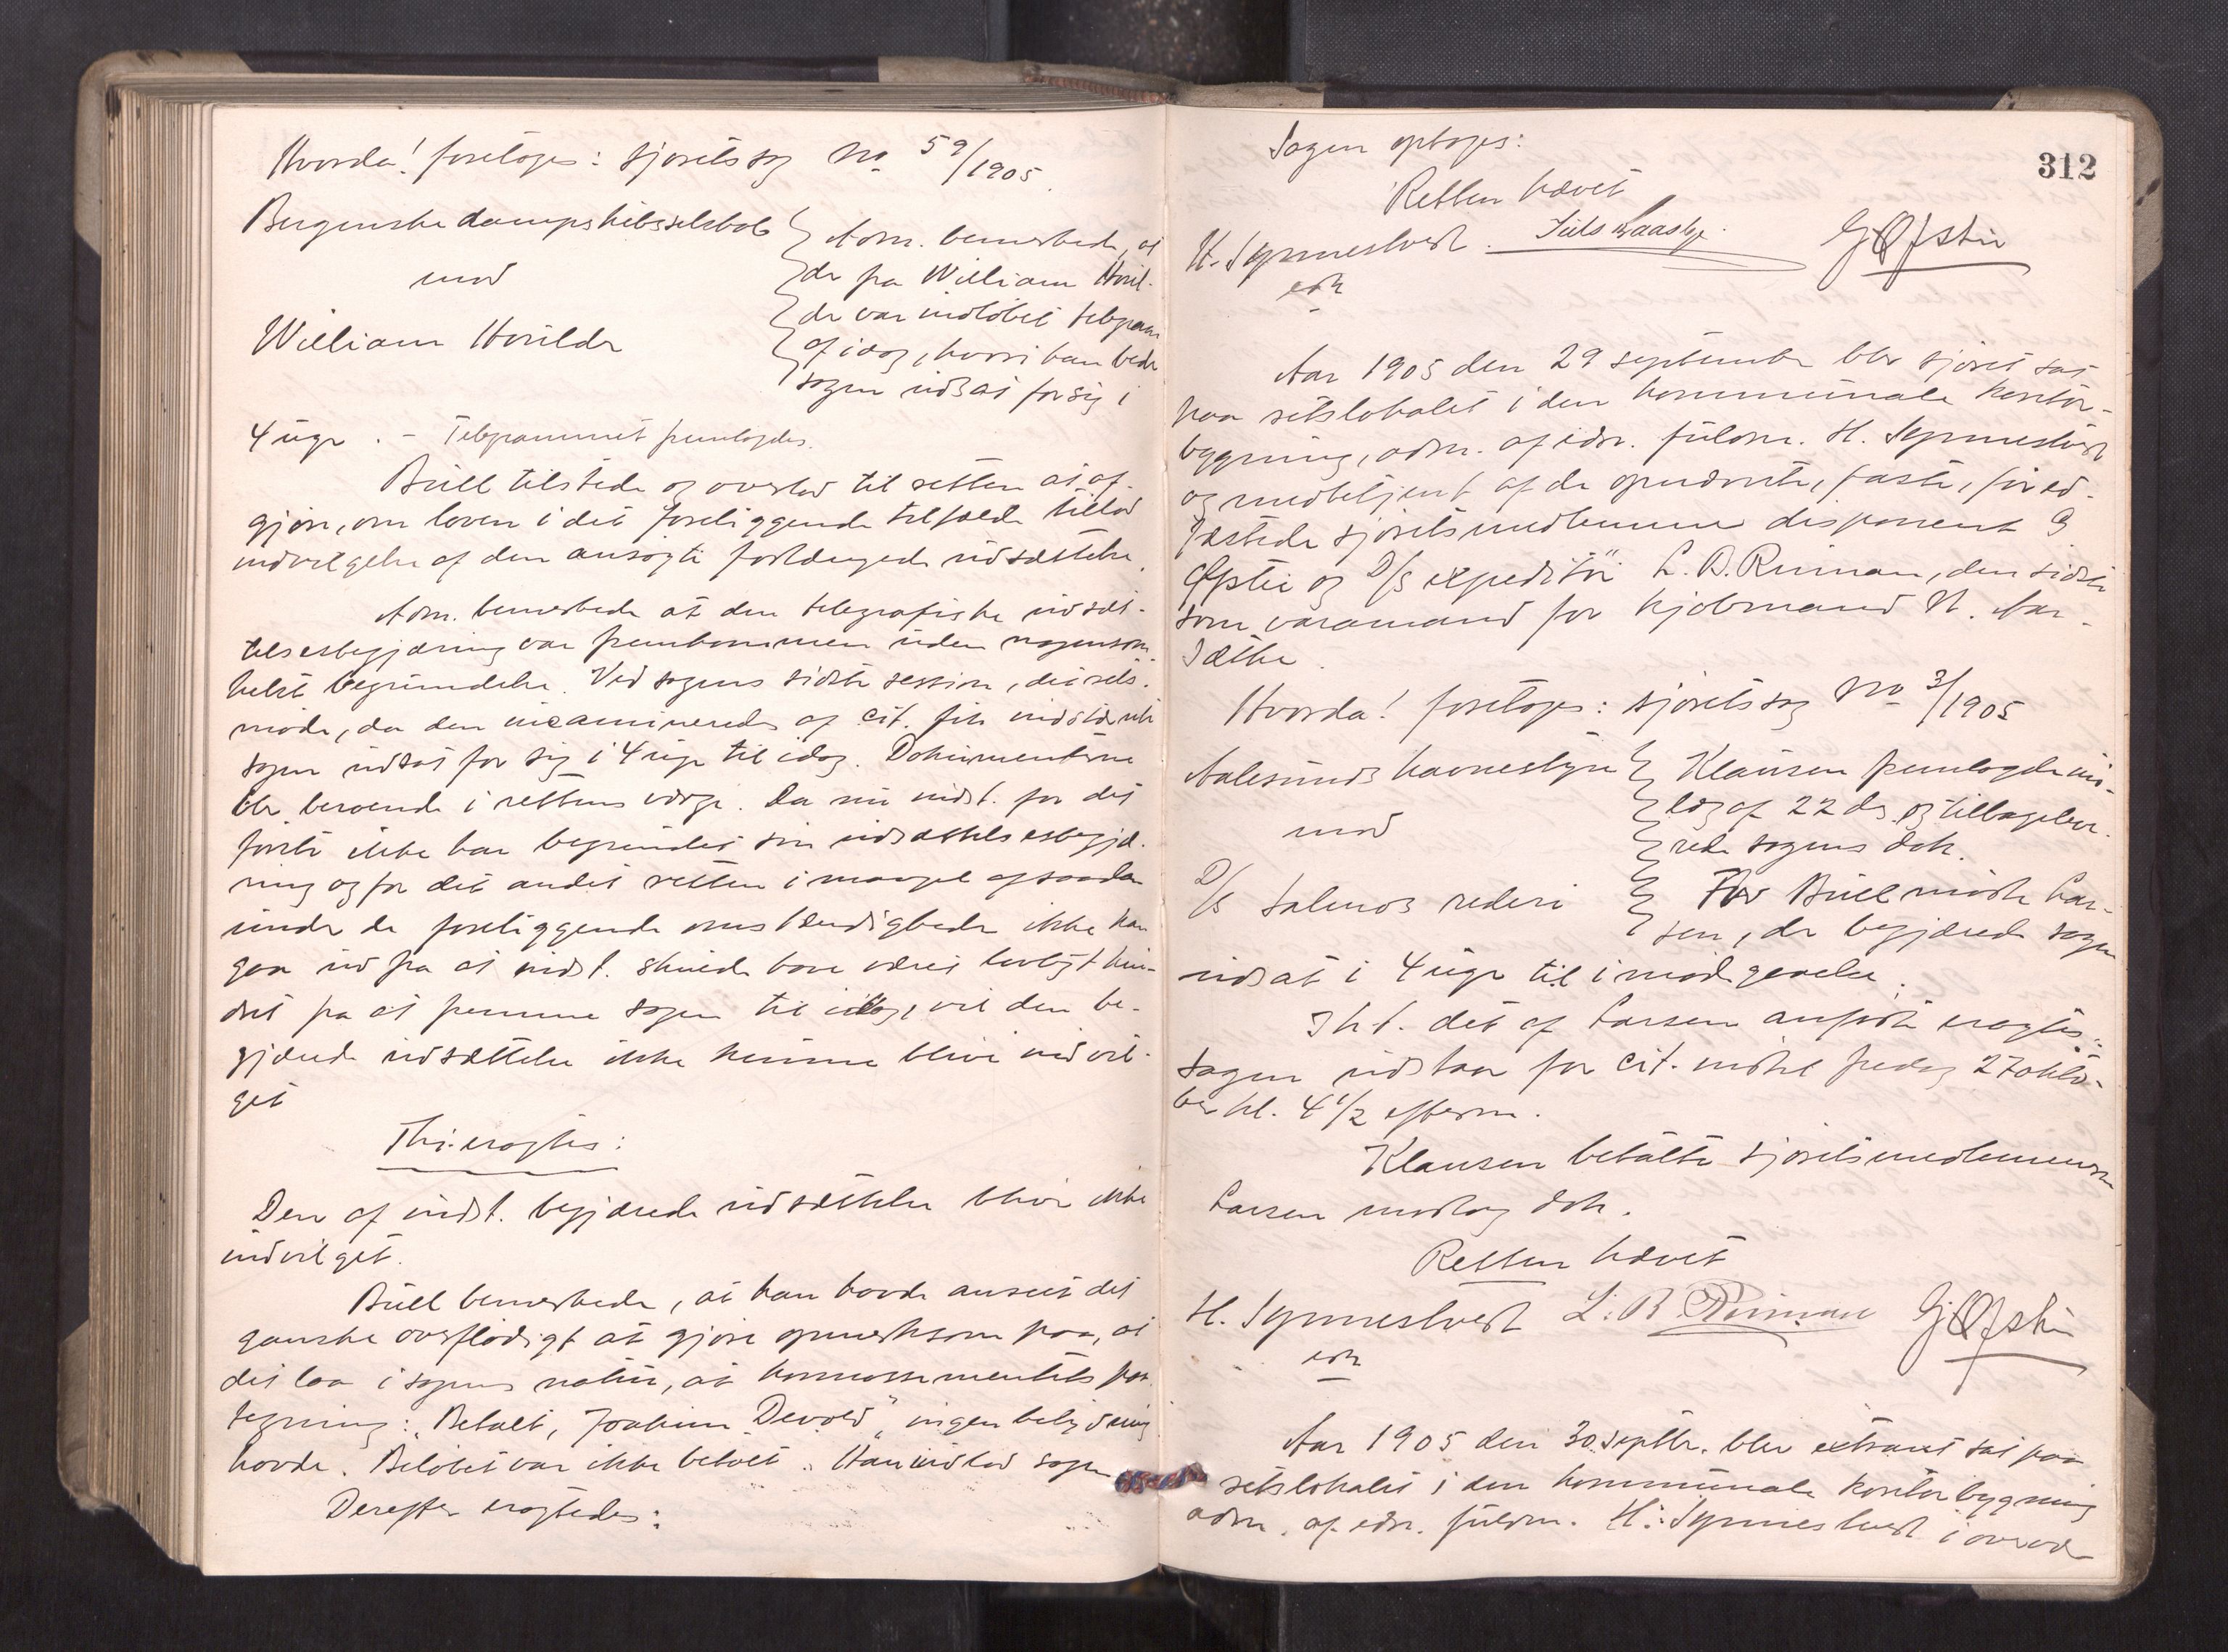 Hvorda! foretoges: sjøretssag No 59/1905.
Bergenske dampskibsselskab
mod
William Hovilde
Adm. bemerkede, at
der fra William Hovil-
de var indløbet telegram
af idag, hvori han beder
sagen udsat for sig i
4 uger. - Telegrammet fremlagdes.
Bull tilstede og overlod til retten at af-
gjøre, om loven i det foreliggende tilfælde tillod
indvilgelse af den ansøgte forlængede udsættelse.
Adm. bemerkede at den telegrafiske udsæt-
telsesbegjæring var fremkommen uden nogensom-
helst begrundelse. Ved sagens sidste session, det rets-
møde, da den incamineredes af cit. fik indstevnte
sagen udsat for sig i 4 uger til idag. Dokumenterne
blev beroende i rettens værge. Da nu indst. for det
første ikke har begrundet sin udsættelsesbegjæ-
ring og for det andet retten i mangel af saadan
under de foreliggende omstændigheder ikke kan
gaa ud fra at indst. skulde have været lovligt hin-
dret fra at fremme sagen til idag, vil den be-
gjærede udsættelse ikke kunne blive indvil-
get
Thi eragtes:
Den af indst. begjærede udsættelse blir ikke
indvilget.
Bull bemerkede, at han havde anseet det
ganske overflødigt at gjøre opmerksom paa, at
det laa i sagens natur, at konnossementets paa-
tegning: "Betalt, Joakim Devold" ingen betydning
havde. Beløbet var ikke betalt. Han indlod sagen
Derefter eragtedes:
312
Sagen optages:
Retten hævet
H. Synnestvedt
edn
G Øfstie
Aar 1905 den 29 september blev sjøret sat
paa retslokalet i den kommunale kontor-
bygning, adm. af edsv. fuldm. H. Synnestvedt
og medbetjent af de opnævnte, faste, fored-
fæstede sjøretsmedlemmer disponent G
Øfstie og D/s expeditør L. B. Riiman, den sidste
som varamand for kjøbmand N. Aar-
sæthe.
Hvorda! foretoges: sjøretssag No 3/1905
Aalesunds havnestyre
mod
D/s Salmos rederi
Klausen fremlagde ind-
læg af 22 ds og tilbagelever-
rede sagens dok.
For Bull mødte Lar-
sen, der begjærede sagen
udsat i 4 uger til imødegaaelse.
I ht. det af Larsen anførte eragtes:
Sagen udstaar for cit. indtil fredag 27 okto-
ber kl. 4 1/2 efterm.
Klausen betalte sjøretsmedlemmerne
Larsen modtog dok.
Retten hævet
H. Synnestvedt L. B Riiman G Øfstie
edn
Aar 1905 den 30 septbr. blev extraret sat paa
retslokalet i den kommunale kontorbygning
adm. af edsv. fuldm. H. Synnestvedt i overvær